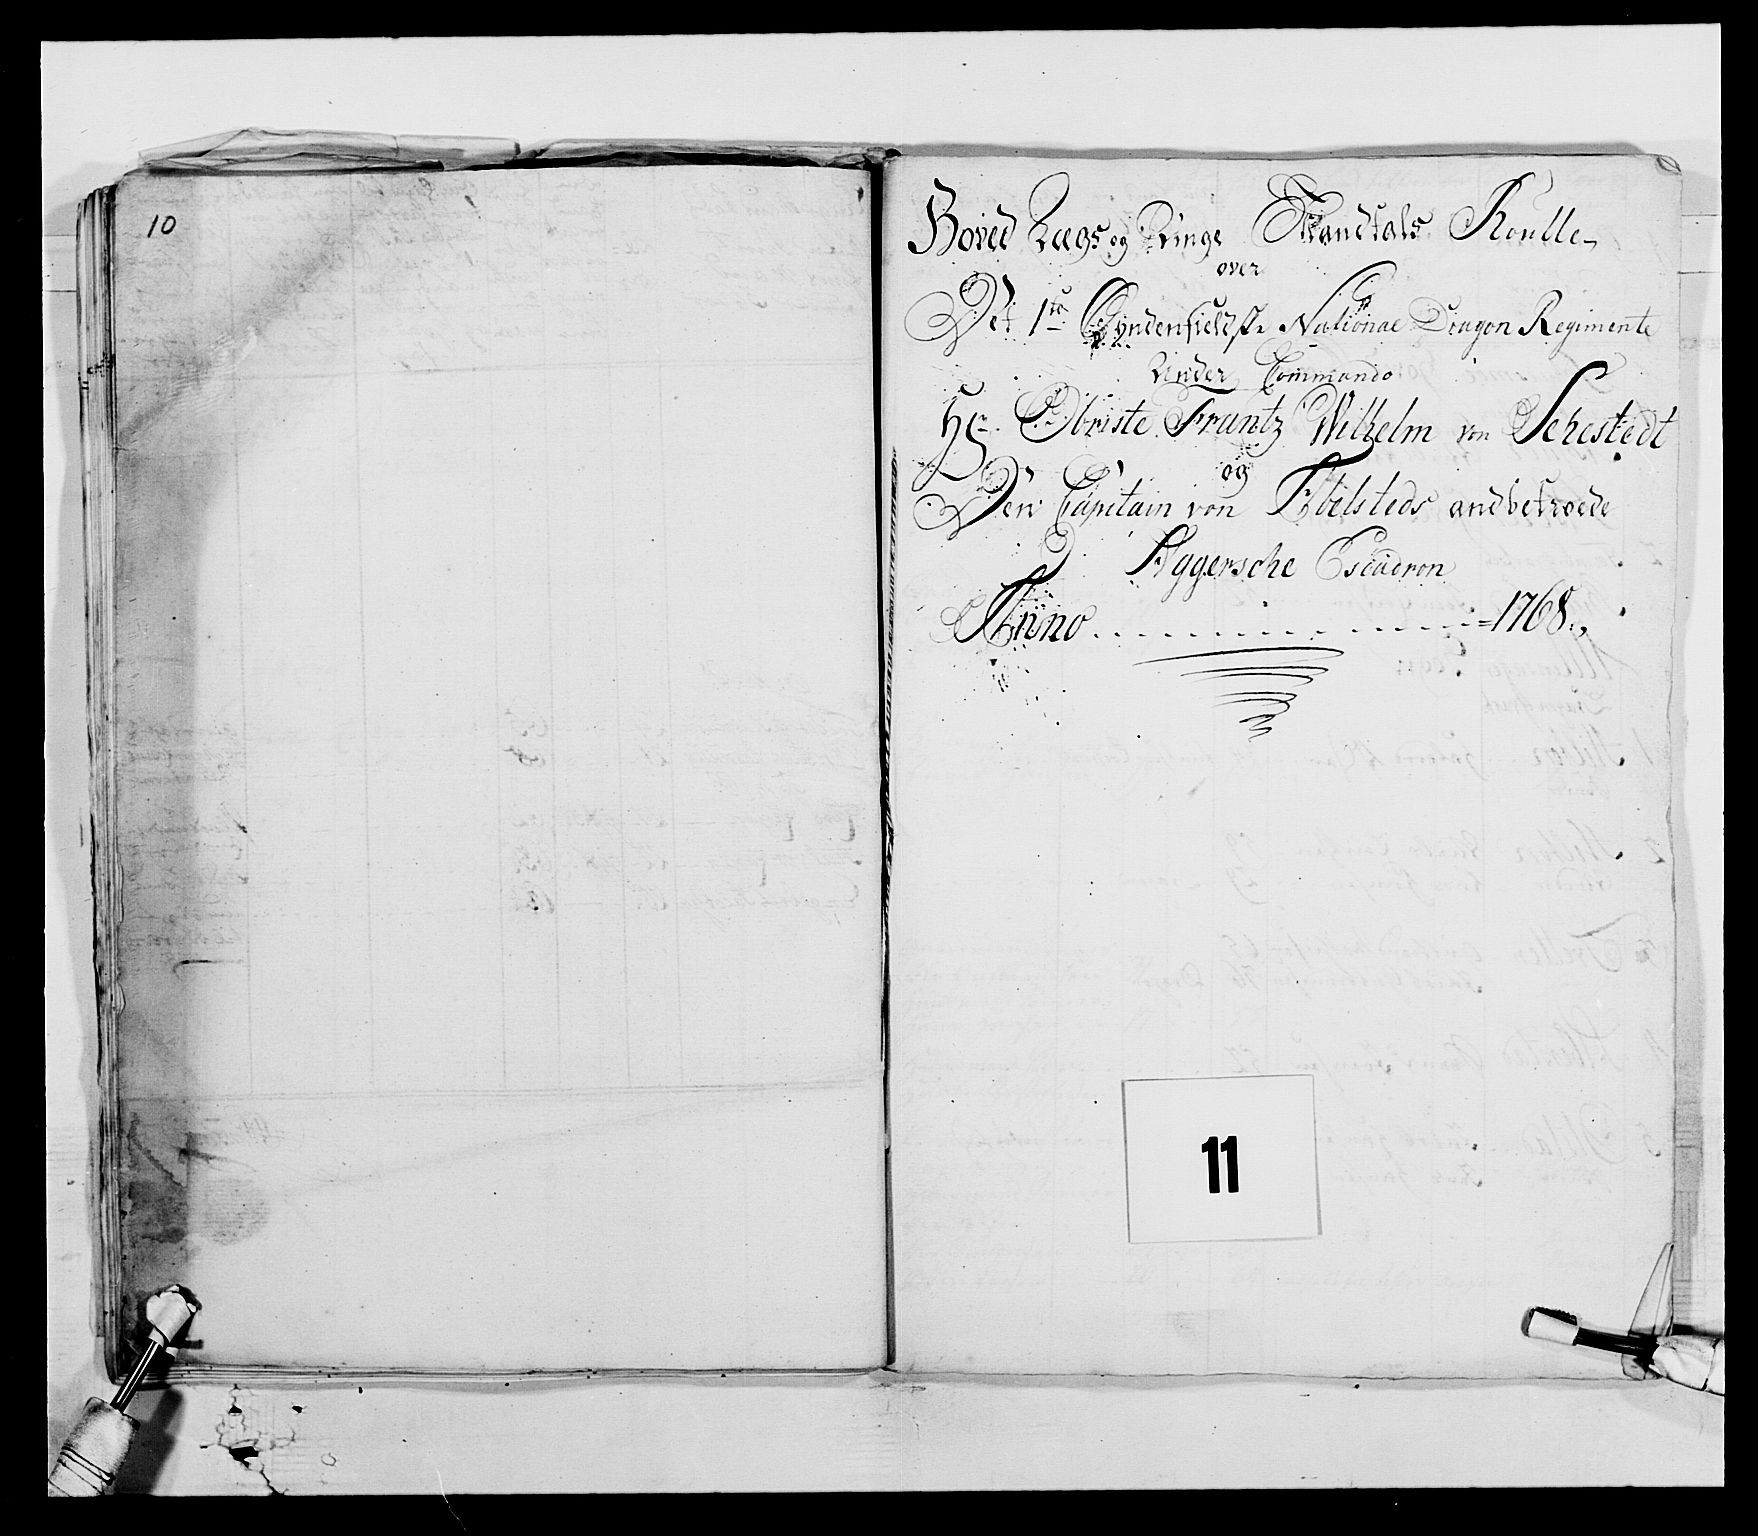 10
Hoved Lægs og Ringe Mandtals Roulle
over
Det 1ste Syndenfieldske National Dragon Regimente
Under Commando
Hr. Obriste Frantz Wilhelm von Sehestedt
og
Den Capitain von Ebelsteds andbetroede
Aggersche Escadron
Anno - - - - - - - - - - - - 1768.
11